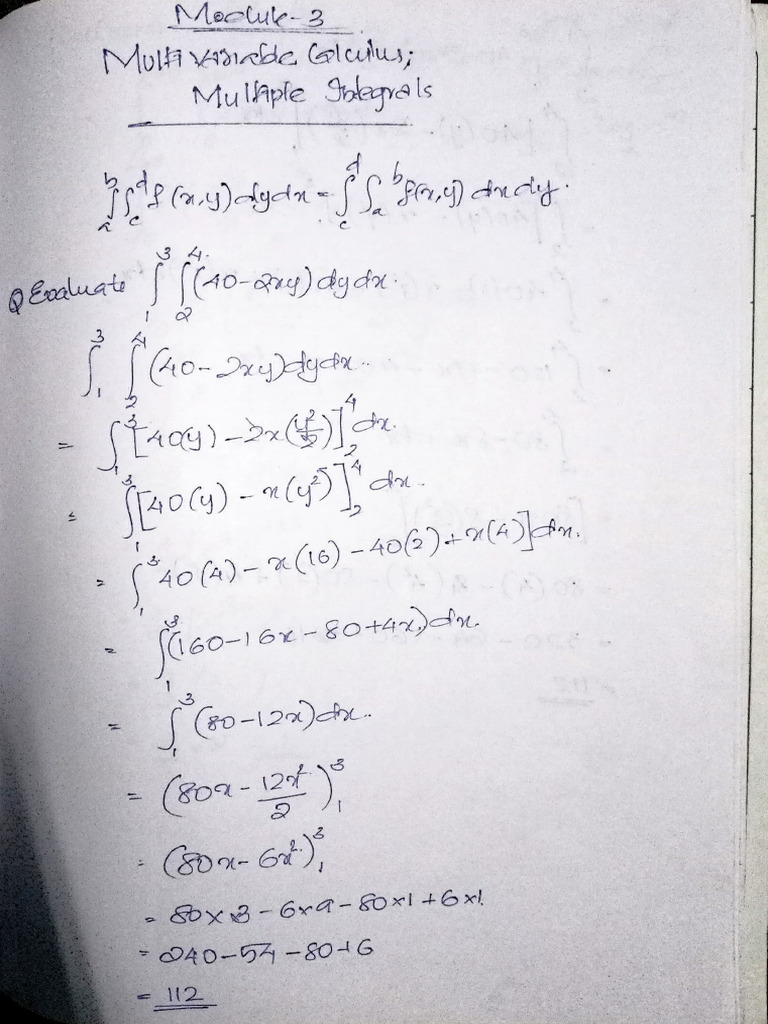 Module-3
Multivariable Calculus;
Multiple Integrals
∫_a^b ∫_c^d f(x,y) dy dx = ∫_c^d ∫_a^b f(x,y) dx dy.
Q Evaluate ∫_1^3 ∫_2^4 (40-2xy) dy dx.
∫_1^3 ∫_2^4 (40-2xy) dy dx.
= ∫_1^3 [40(y) - 2x(y²/2)]_2^4 dx.
= ∫_1^3 [40(y) - x(y²)]_2^4 dx.
= ∫_1^3 40(4) - x(16) - 40(2) + x(4)] dx.
= ∫_1^3 (160-16x-80+4x) dx.
= ∫_1^3 (80-12x) dx.
= (80x - 12x²/2)_1^3
= (80x - 6x²)_1^3
= 80×3 - 6×9 - 80×1 + 6×1.
= 240-54-80+6
= 112